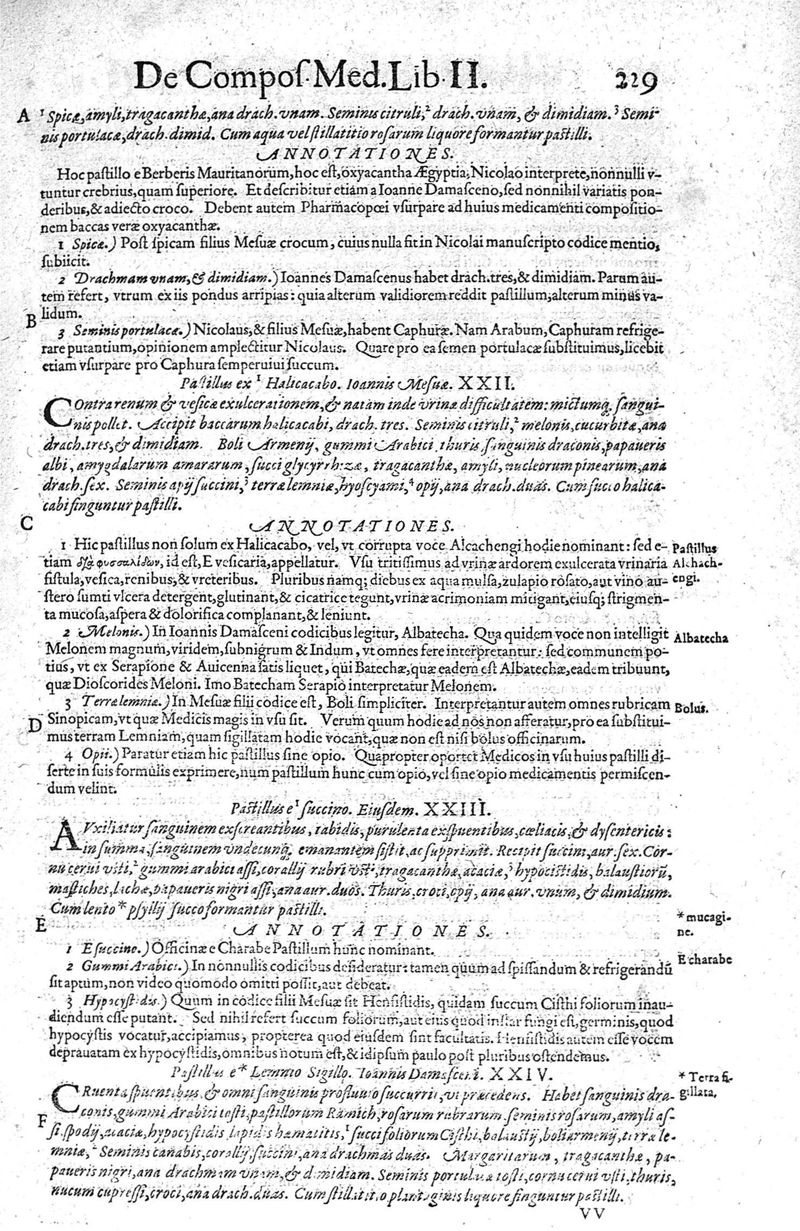 De Compos. Med. Lib. II. 229
A ¹ Spicæ, amyli, tragacanthæ, ana drach. vnam. Seminis citruli,² drach. vnam, & dimidiam.³ Semi-
nis portulacæ, drach. dimid. Cum aqua vel stillatitio rosarum liquore formantur pastilli.
ANNOTATIONES.
Hoc pastillo e Berberis Mauritanorum, hoc est, oxyacantha Ægyptia, Nicolao interprete, nonnulli v-
tuntur crebrius, quam superiore. Et describitur etiam a Ioanne Damasceno, sed nonnihil variatis pon-
deribus, & adiecto croco. Debent autem Pharmacopœi vsurpare ad huius medicamenti compositio-
nem baccas veræ oxyacanthæ.
1 Spicæ.) Post spicam filius Mesuæ crocum, cuius nulla fit in Nicolai manuscripto codice mentio,
subiicit.
2 Drachmam vnam, & dimidiam.) Ioannes Damascenus habet drach. tres, & dimidiam. Parum au-
tem refert, vtrum ex iis pondus arripias: quia alterum validiorem reddit pastillum, alterum minus va-
lidum.
B
3 Seminis portulacæ.) Nicolaus, & filius Mesuæ, habent Caphuræ. Nam Arabum, Caphuram refrige-
rare putantium, opinionem amplectitur Nicolaus. Quare pro ea semen portulacæ substituimus, licebit
etiam vsurpare pro Caphura semperuiui succum.
Pastillus ex ¹ Halicacabo. Ioannis Mesuæ. XXII.
COntra renum & vesicæ exulcerationem, & natam inde vrinæ difficultatem: mictumq; sangui-
nis pollet. Accipit baccarum halicacabi, drach. tres. Seminis citruli,² melonis, cucurbitæ, ana
drach. tres, & dimidiam. Boli Armenij, gummi Arabici, thuris, sanguinis draconis, papaueris
albi, amygdalarum amararum, succi glycyrrhizæ, tragacanthæ, amyli, nucleorum pinearum, ana
drach. sex. Seminis apij, succini,³ terræ lemniæ, hyoscyami,⁴ opij, ana drach. duas. Cum succo halica-
cabi finguntur pastilli.
C
ANNOTATIONES.
1 Hic pastillus non solum ex Halicacabo, vel, vt corrupta voce Alcachengi hodie nominant: sed e-
tiam διὰ φυσσαλίδων, id est, E vesicaria, appellatur. Vsu tritissimus ad vrinæ ardorem exulcerata vrinaria
fistula, vesica, renibus, & vreteribus. Pluribus namq; diebus ex aqua mulsa, zulapio rosato, aut vino au-
stero sumti vlcera detergent, glutinant, & cicatrice tegunt, vrinæ acrimoniam mitigant, eiusq; strigmen-
ta mucosa, aspera & dolorifica complanant, & leniunt.
Pastillus
Alchach-
engi.
2 Melonis.) In Ioannis Damasceni codicibus legitur, Albatecha. Qua quidem voce non intelligit
Melonem magnum, viridem, subnigrum & Indum, vt omnes fere interpretantur: sed communem po-
tius, vt ex Serapione & Auicenna satis liquet, qui Batechæ, quæ eadem est Albatechæ, eadem tribuunt,
quæ Dioscorides Meloni. Imo Batecham Serapio interpretatur Melonem.
Albatecha
3 Terræ lemniæ.) In Mesuæ filii codice est, Boli simpliciter. Interpretantur autem omnes rubricam
Sinopicam, vt quæ Medicis magis in vsu sit. Verum quum hodie ad nos non afferatur, pro ea substitui-
mus terram Lemniam, quam sigillatam hodie vocant, quæ non est nisi bolus officinarum.
Bolus.
D
4 Opii.) Paratur etiam hic pastillus sine opio. Quapropter oportet Medicos in vsu huius pastilli di-
serte in suis formulis exprimere, num pastillum hunc cum opio, vel sine opio medicamentis permiscen-
dum velint.
Pastillus e ¹ succino. Eiusdem. XXIII.
AVxiliatur sanguinem exscreantibus, tabidis, purulenta expuentibus, cœliacis, & dysentericis:
in summa, sanguinem vndecunq; emanantem sistit, ac supprimit. Recipit succini, aur. sex. Cor-
nu cerui vsti,² gummi arabici assi, corallij rubri vsti, tragacanthæ, acaciæ,³ hypocistidis, balaustiorū,
mastiches, lachæ, papaueris nigri assi, ana aur. duos. Thuris, croci, opij, ana aur. vnum, & dimidium.
Cum lento * psyllij succo formantur pastilli.
* mucagi-
ne.
E
ANNOTATIONES.
1 E succino.) Officinæ e Charabe Pastillum hunc nominant.
E charabe
2 Gummi Arabici.) In nonnullis codicibus desideratur: tamen quum ad spissandum & refrigerandū
sit aptum, non video quomodo omitti possit, aut debeat.
3 Hypocystidis.) Quum in codice filii Mesuæ sit Hensistidis, quidam succum Cisthi foliorum inau-
diendum esse putant. Sed nihil refert succum foliorum, aut eius quod instar fungi est, germinis, quod
hypocystis vocatur, accipiamus, propterea quod eiusdem sint facultatis. Hensistidis autem esse vocem
deprauatam ex hypocystidis, omnibus notum est, & id ipsum paulo post pluribus ostendemus.
Pastillus e * Lemnio Sigillo. Ioannis Damasceni. XXIV.
* Terra si-
gillata.
CRuenta spuentibus, & omni sanguinis profluuio succurrit, vt præcedens. Habet sanguinis dra-
conis, gummi Arabici tosti, pastillorum Ramich, rosarum rubrarum, seminis rosarum, amyli as-
F
si, spodij, acaciæ, hypocystidis, lapidis hæmatitis,¹ succi foliorum Cisthi, balaustij, boli armenij, terræ le-
mniæ,² Seminis canabis, corallij, succini, ana drachmas duas. Margaritarum, tragacanthæ, pa-
paueris nigri, ana drachmam vnam, & dimidiam. Seminis portulacæ tosti, cornu cerui vsti, thuris,
nucum cupressi, croci, ana drach. duas. Cum stillatitio plantaginis liquore finguntur pastilli.
VV